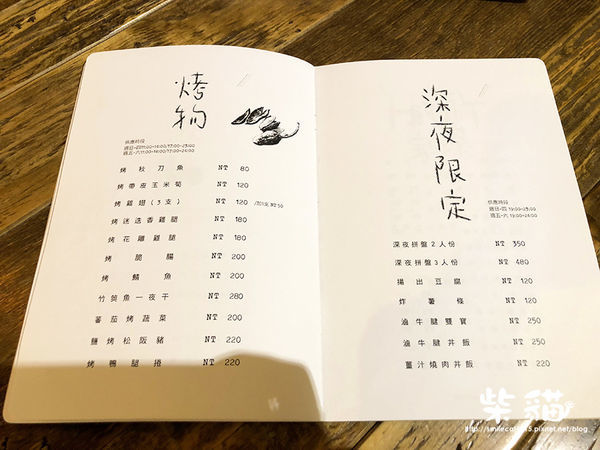 烤物
供應時段
週日-四11:00-14:00/17:00-23:00
週五-六11:00-14:00/17:00-24:00
烤秋刀魚 NT 80
烤帶皮玉米筍 NT 120
烤雞翅(3支) NT 120
烤迷迭香雞腿 NT 180
烤花雕雞腿 NT 180
烤脆腸 NT 200
烤鯖魚 NT 200
竹筴魚一夜干 NT 280
蕃茄烤蔬菜 NT 200
鹽烤松阪豬 NT 220
烤鴨腿捲 NT 220
深夜限定
供應時段
週日-四 19:00-23:00
週五-六 19:00-24:00
深夜拼盤2人份 NT 350
深夜拼盤3人份 NT 480
揚出豆腐 NT 120
炸薯條 NT 120
滷牛腱雙寶 NT 250
滷牛腱丼飯 NT 250
薑汁燒肉丼飯 NT 220
柴貓